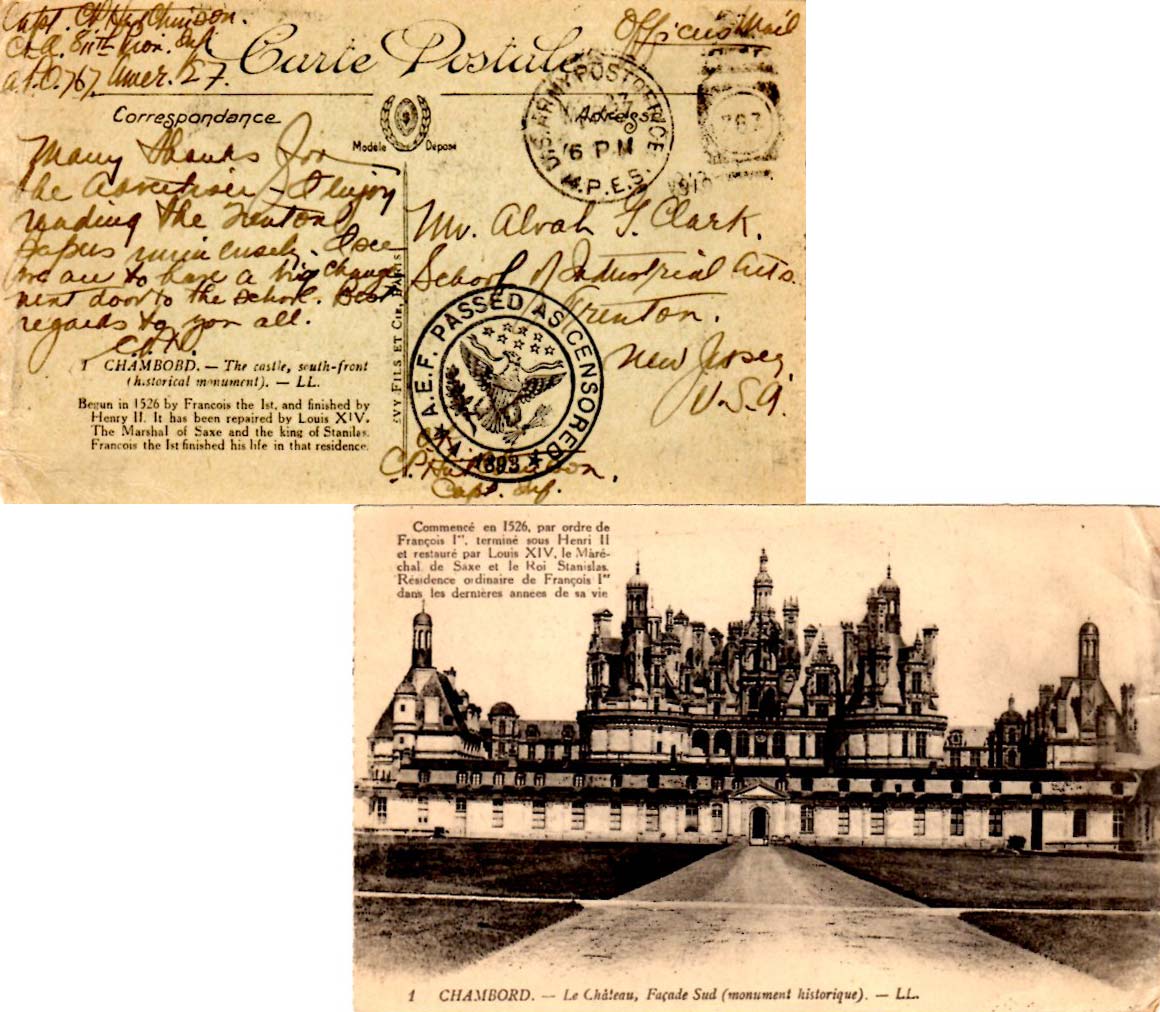 Capt. C.P. Hutchinson.
Co. A. 811th Pion. Inf.
A.P.O. 767 Amer. E.F.
Officer's Mail
Carte Postale
Correspondance
Modèle Déposé
Adresse
U.S. ARMY POST OFFICE
6 P.M.
M.P.E.S.
767
Many thanks for
the Advertiser - I enjoy
reading the Trenton
papers immensely. I see
we are to have a big change
next door to the school. Best
regards to you all.
C.P.H.
Mr. Alvah T. Clark.
School of Industrial Arts.
Trenton.
New Jersey.
U.S.A.
A.E.F. PASSED AS CENSORED
C.P. Hutchinson.
Capt. Inf.
1 CHAMBORD. — The castle, south-front
(historical monument). — LL.
Begun in 1526 by Francois the Ist, and finished by
Henry II. It has been repaired by Louis XIV.
The Marshal of Saxe and the king of Stanilas.
Francois the Ist finished his life in that residence.
LEVY FILS ET Cie, PARIS
Commencé en 1526, par ordre de
François Iᵉʳ, terminé sous Henri II
et restauré par Louis XIV, le Maré-
chal de Saxe et le Roi Stanislas.
Résidence ordinaire de François Iᵉʳ
dans les dernières années de sa vie
1 CHAMBORD. — Le Château, Façade Sud (monument historique). — LL.